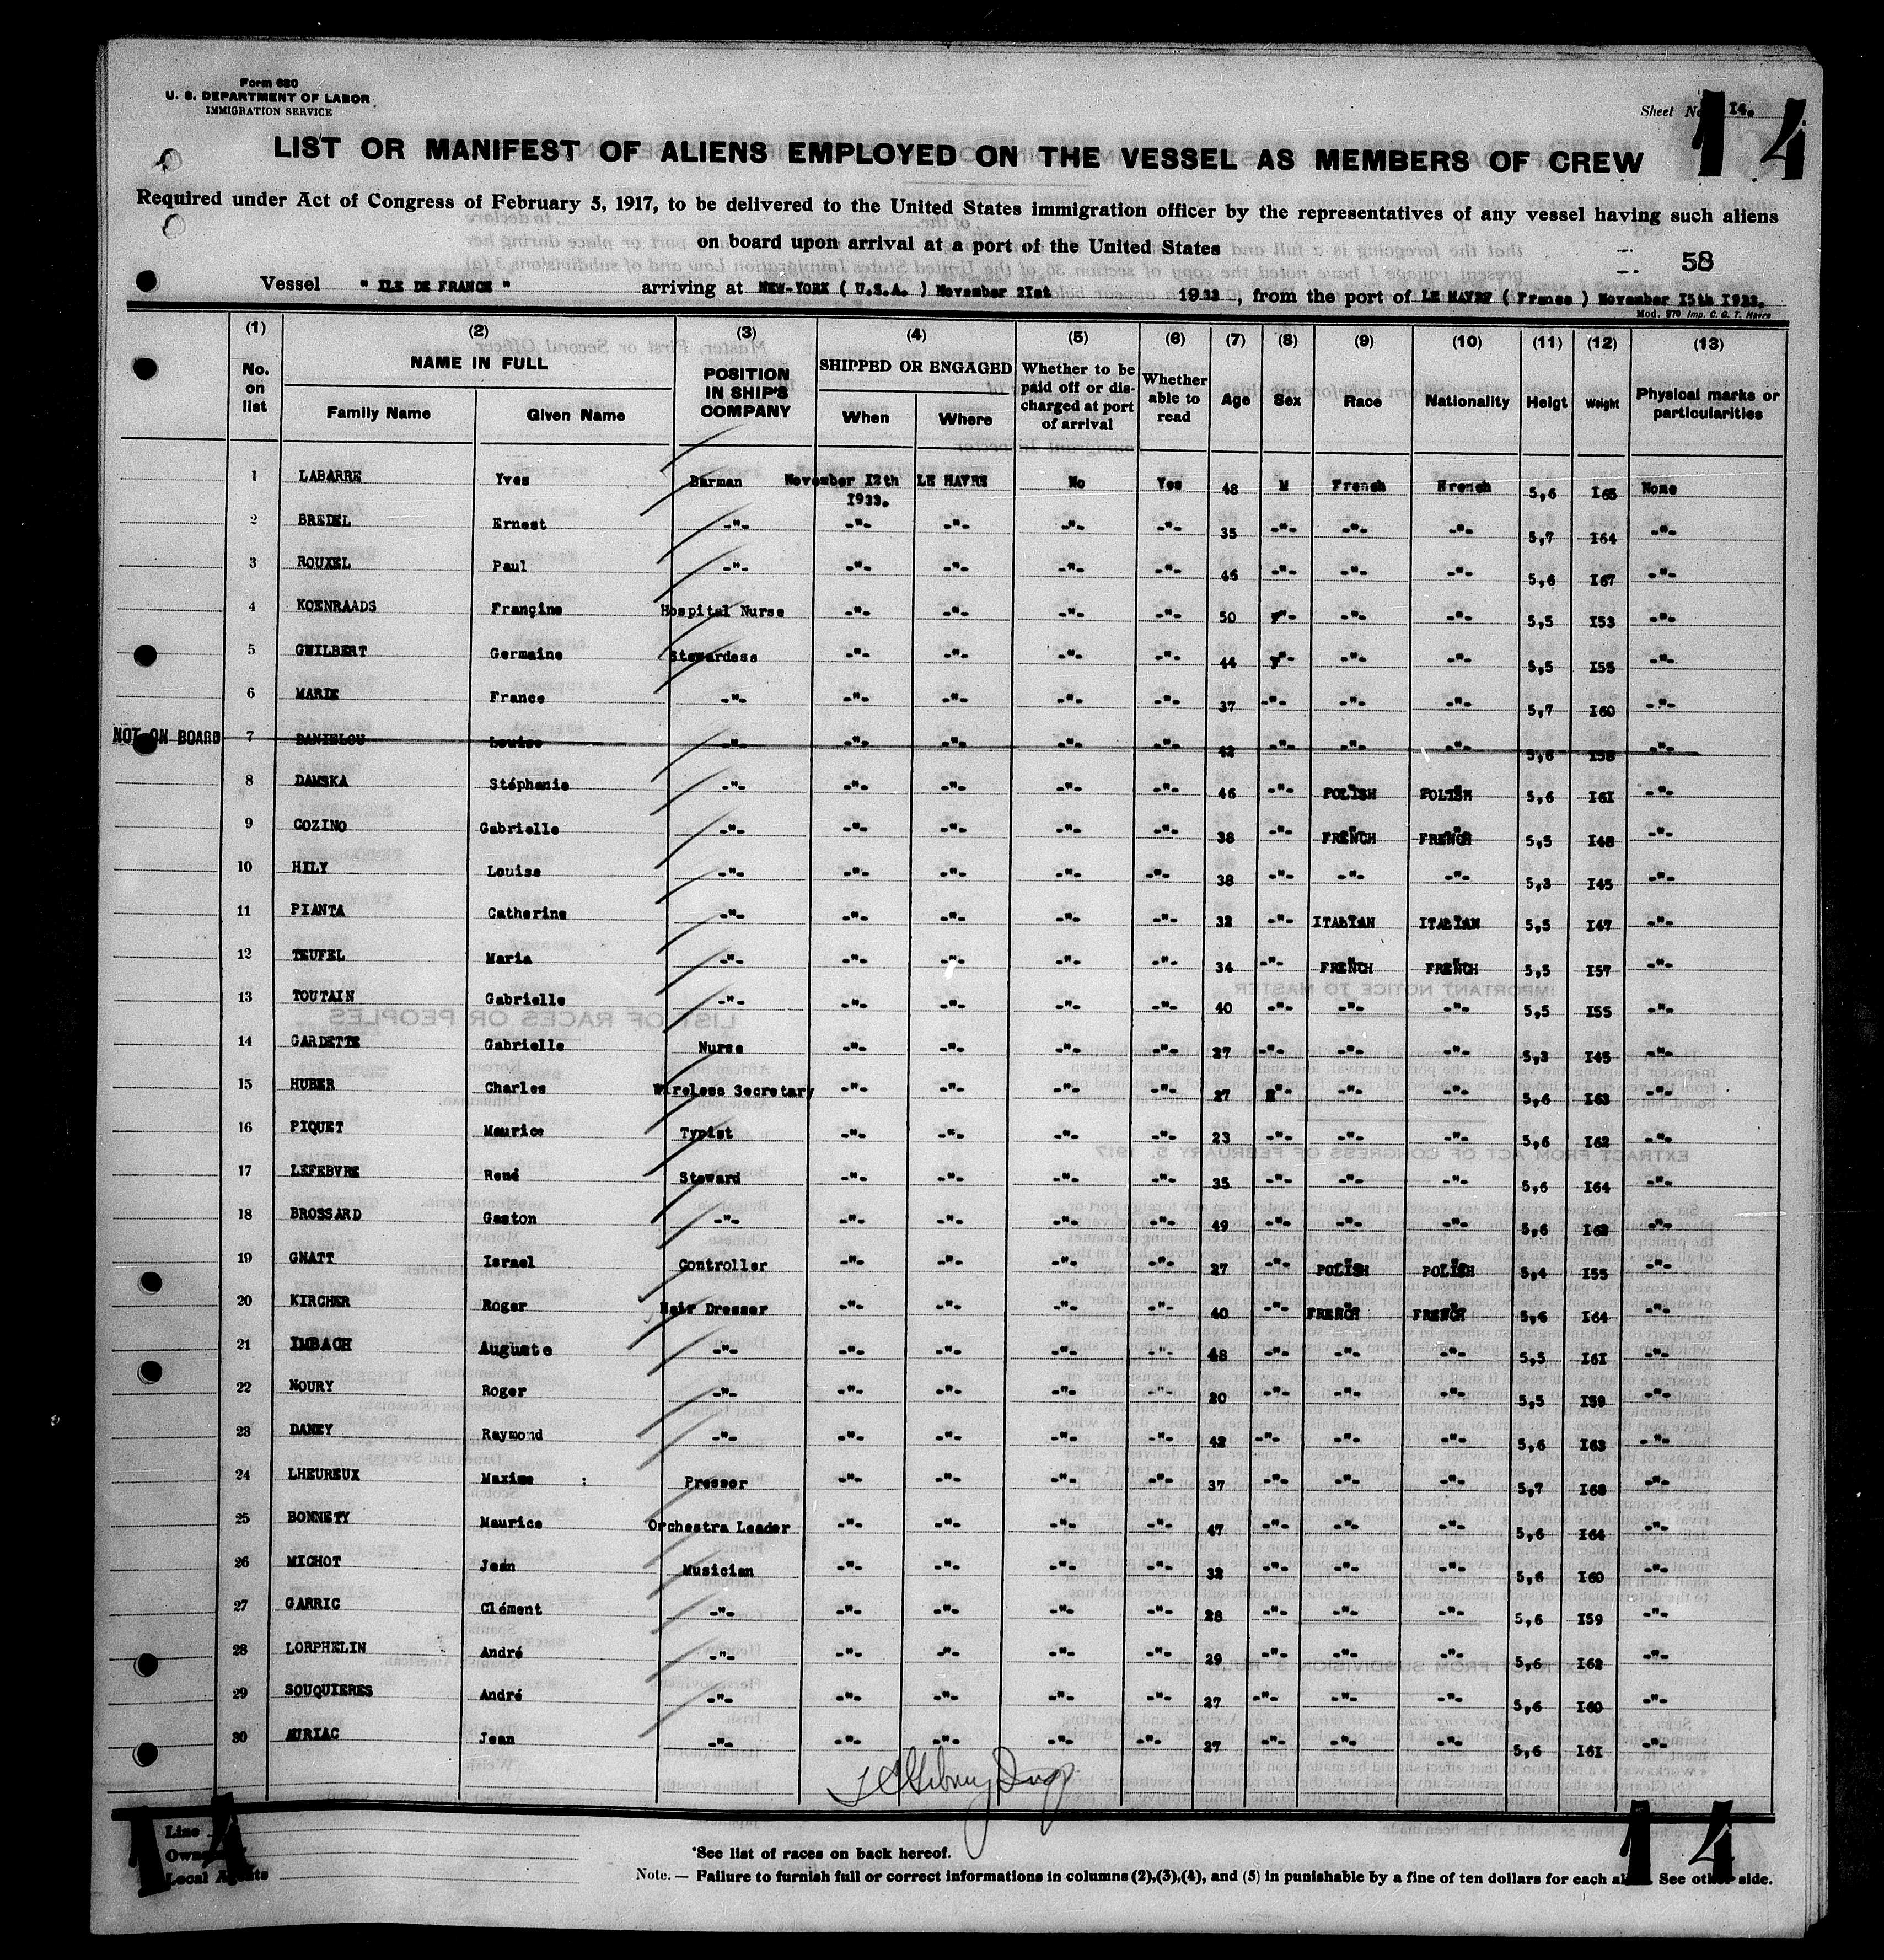 Form 680
U. S. DEPARTMENT OF LABOR
IMMIGRATION SERVICE
Sheet No 14.
14
LIST OR MANIFEST OF ALIENS EMPLOYED ON THE VESSEL AS MEMBERS OF CREW
Required under Act of Congress of February 5, 1917, to be delivered to the United States immigration officer by the representatives of any vessel having such aliens
on board upon arrival at a port of the United States
58
Vessel " ILE DE FRANCE " arriving at NEW-YORK ( U.S.A. ) November 21st 1933, from the port of LE HAVRE ( France ) November 15th 1933.
Mod. 970 Imp. C. G. T. Havre
(1) (2) (3) (4) (5) (6) (7) (8) (9) (10) (11) (12) (13)
No. on list NAME IN FULL Family Name Given Name POSITION IN SHIP'S COMPANY SHIPPED OR ENGAGED When Where Whether to be paid off or discharged at port of arrival Whether able to read Age Sex Race Nationality Heigt Weight Physical marks or particularities
1 LABARRE Yves Barman November 12th 1933. LE HAVRE No Yes 48 M French French 5,6 165 None
2 BREDEL Ernest -"- -"- -"- -"- -"- 35 -"- -"- -"- 5,7 164 -"-
3 ROUXEL Paul -"- -"- -"- -"- -"- 45 -"- -"- -"- 5,6 167 -"-
4 KOENRAADS Françine Hospital Nurse -"- -"- -"- -"- 50 F -"- -"- 5,5 153 -"-
5 GUILBERT Germaine Stewardess -"- -"- -"- -"- 44 F -"- -"- 5,5 155 -"-
6 MARIE France -"- -"- -"- -"- -"- 37 -"- -"- -"- 5,7 160 -"-
NOT ON BOARD 7 DANIELOU Louise -"- -"- -"- -"- -"- 42 -"- -"- -"- 5,6 158 -"-
8 DAMSKA Stéphanie -"- -"- -"- -"- -"- 46 -"- POLISH POLISH 5,6 161 -"-
9 COZINO Gabrielle -"- -"- -"- -"- -"- 38 -"- FRENCH FRENCH 5,5 148 -"-
10 HILY Louise -"- -"- -"- -"- -"- 38 -"- -"- -"- 5,3 145 -"-
11 PIANTA Catherine -"- -"- -"- -"- -"- 32 -"- ITALIAN ITALIAN 5,5 147 -"-
12 TEUFEL Maria -"- -"- -"- -"- -"- 34 -"- FRENCH FRENCH 5,5 157 -"-
13 TOUTAIN Gabrielle -"- -"- -"- -"- -"- 40 -"- -"- -"- 5,5 155 -"-
14 GARDETTE Gabrielle Nurse -"- -"- -"- -"- 27 -"- -"- -"- 5,3 145 -"-
15 HUBER Charles Wireless Secretary -"- -"- -"- -"- 27 M -"- -"- 5,6 163 -"-
16 PIQUET Maurice Typist -"- -"- -"- -"- 23 -"- -"- -"- 5,6 162 -"-
17 LEFEBVRE René Steward -"- -"- -"- -"- 35 -"- -"- -"- 5,6 164 -"-
18 BROSSARD Gaston -"- -"- -"- -"- -"- 49 -"- -"- -"- 5,6 162 -"-
19 GNATT Israel Controller -"- -"- -"- -"- 27 -"- POLISH POLISH 5,4 155 -"-
20 KIRCHER Roger Hair Dresser -"- -"- -"- -"- 40 -"- FRENCH FRENCH 5,6 164 -"-
21 IMBACH Auguste -"- -"- -"- -"- -"- 48 -"- -"- -"- 5,5 161 -"-
22 NOURY Roger -"- -"- -"- -"- -"- 20 -"- -"- -"- 5,5 159 -"-
23 DANEY Raymond -"- -"- -"- -"- -"- 42 -"- -"- -"- 5,6 163 -"-
24 LHEUREUX Maxime : Pressor -"- -"- -"- -"- 37 -"- -"- -"- 5,7 168 -"-
25 BONNETY Maurice Orchestra Leader -"- -"- -"- -"- 47 -"- -"- -"- 5,6 164 -"-
26 MICHOT Jean Musician -"- -"- -"- -"- 32 -"- -"- -"- 5,6 160 -"-
27 GARRIC Clément -"- -"- -"- -"- -"- 28 -"- -"- -"- 5,6 159 -"-
28 LORPHELIN André -"- -"- -"- -"- -"- 29 -"- -"- -"- 5,6 162 -"-
29 SOUQUIERES André -"- -"- -"- -"- -"- 27 -"- -"- -"- 5,6 160 -"-
30 AURIAC Jean -"- -"- -"- -"- -"- 27 -"- -"- -"- 5,6 161 -"-
14 14
Line
Owners
Local Agents
*See list of races on back hereof.
Note. — Failure to furnish full or correct informations in columns (2),(3),(4), and (5) in punishable by a fine of ten dollars for each See other side.